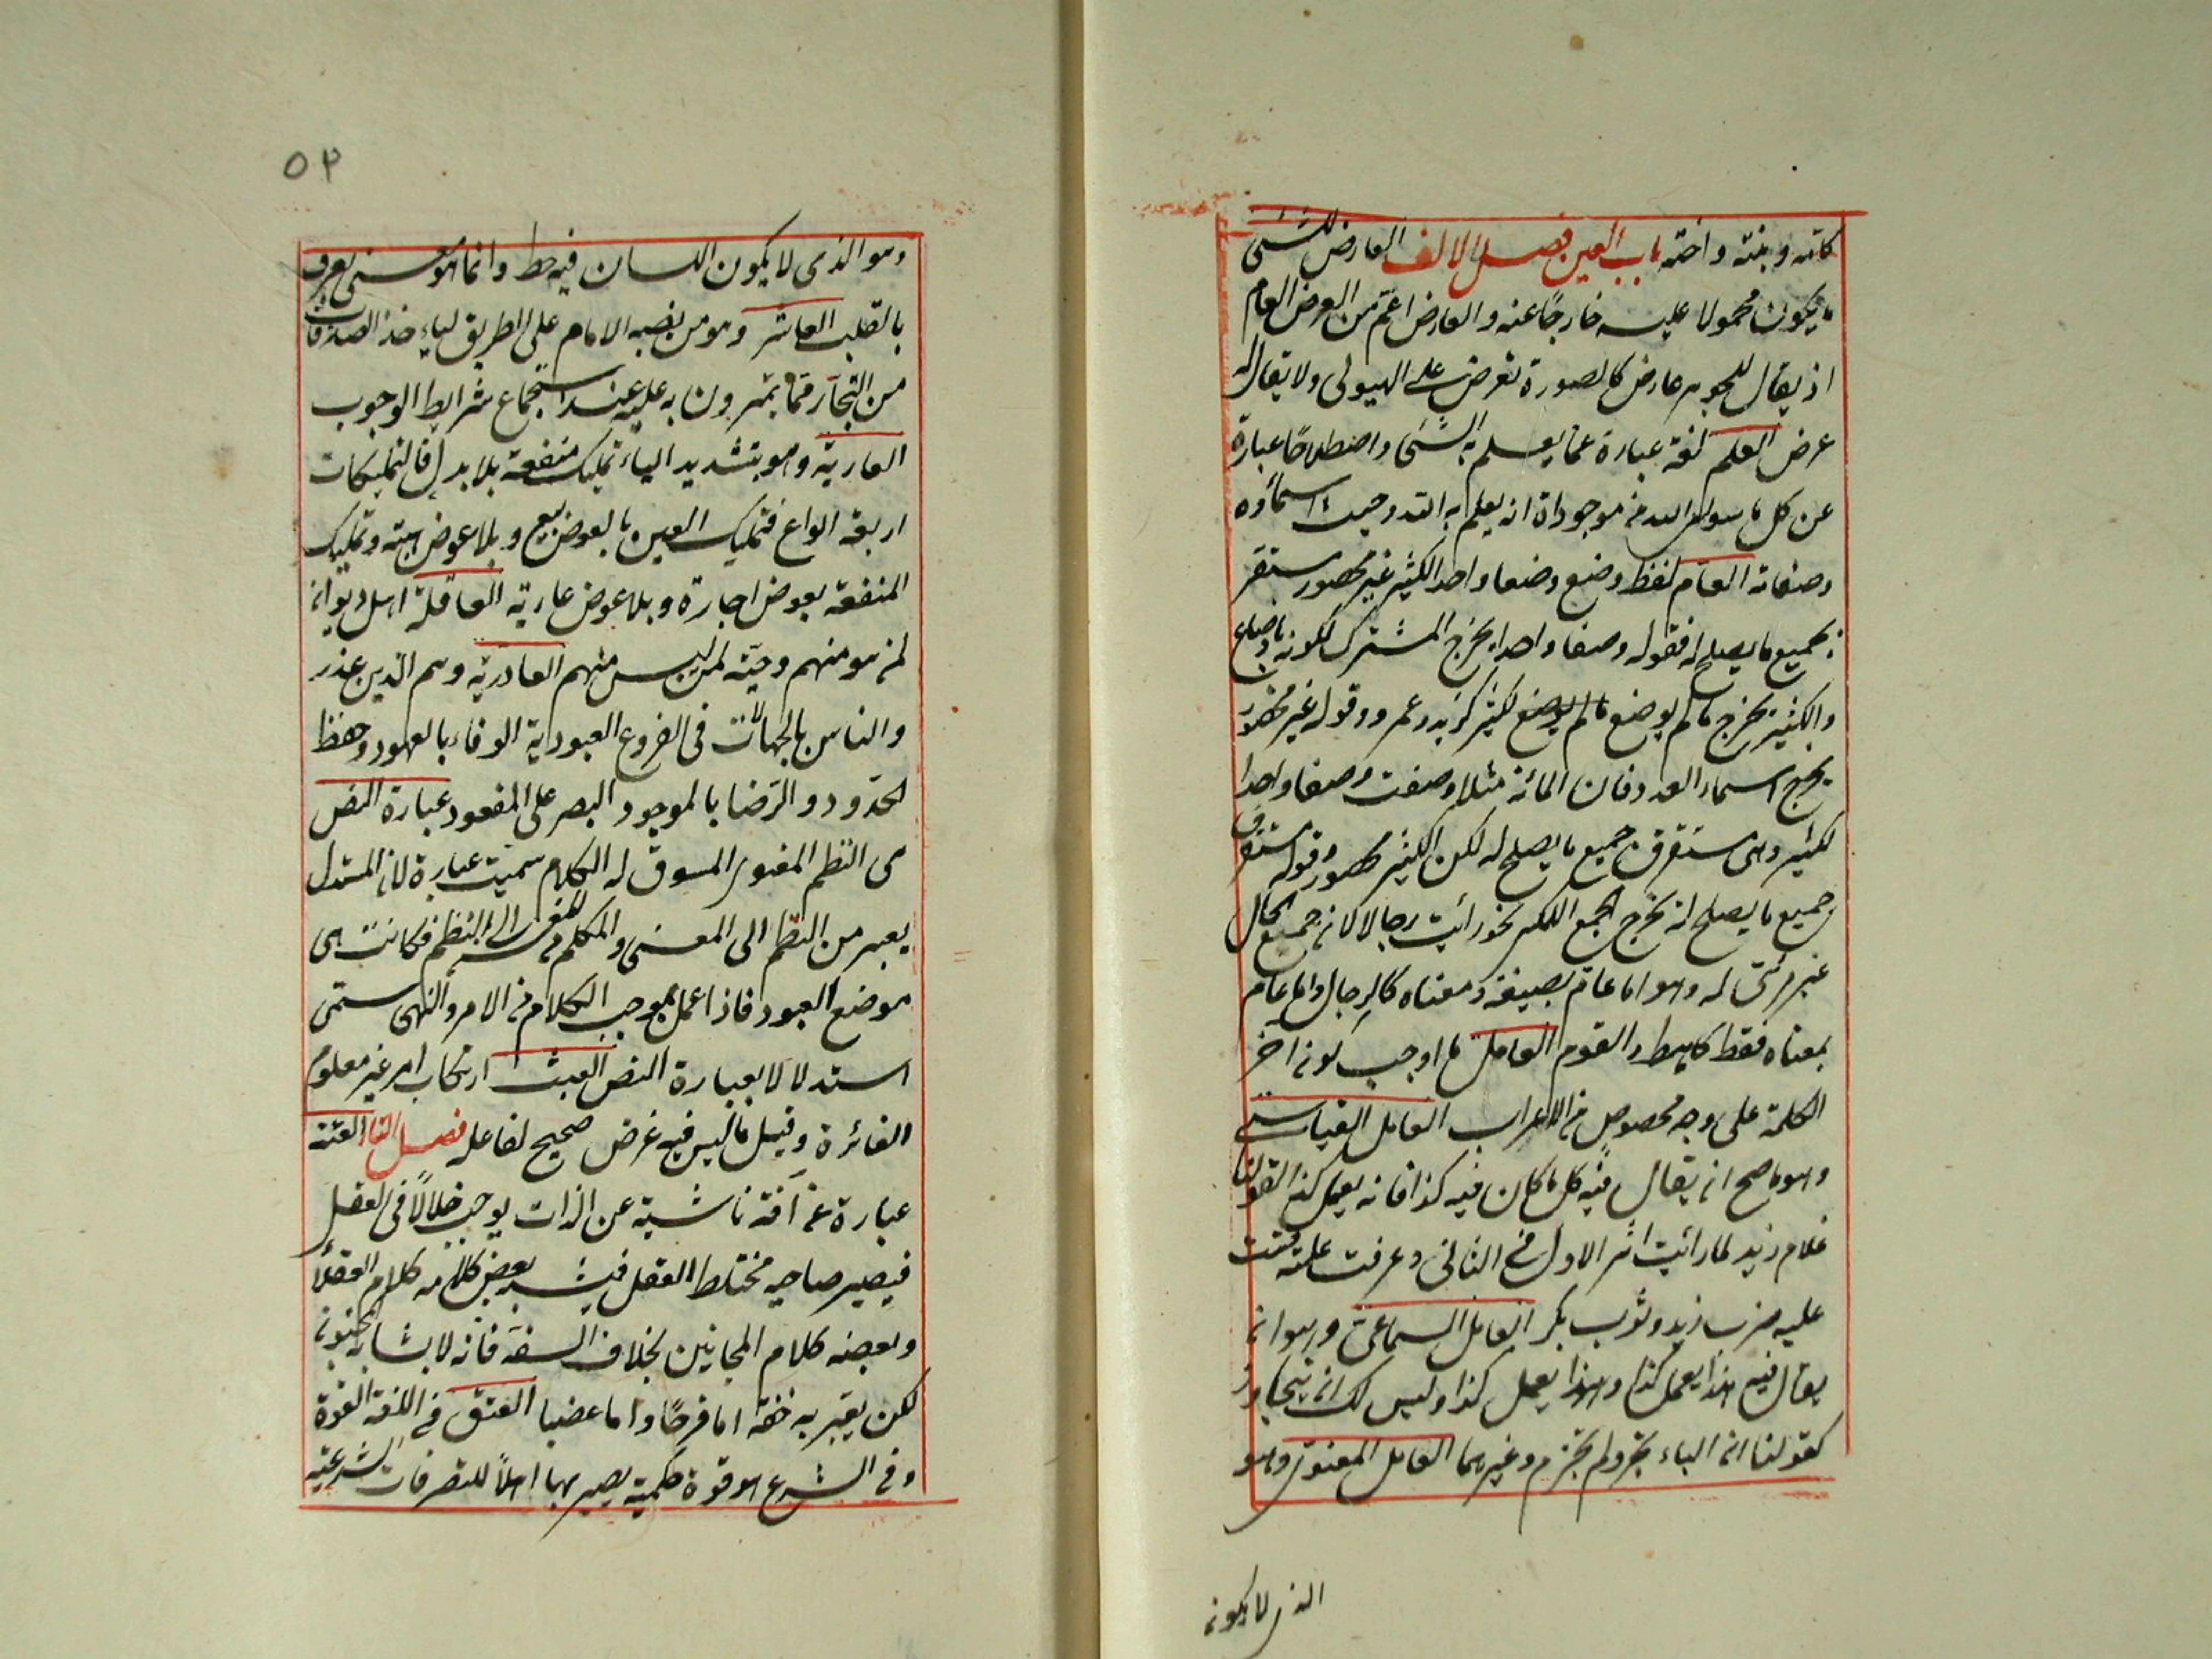 كامه وبنته واخته باب العين فصل الالف العارض للشئ
ما يكون محمولا عليه خارجًا عنه والعارض اعمّ من العرض العام
اذ يقال للجوهر عارض كالصورة تعرض على الهيولى ولا يقال له
عرض العلم لغة عبارة عما يعلم به الشئ واصطلاحًا عبارة
عن كل ما سوى الله من موجوداة انه يعلم به الله من حيث اسماؤه
وصفاته العام لفظ وضع وضعا واحدا لكثير غير محصور مستغرق
بجميع ما يصلح له فقوله وضعا واحدا يخرج المشترك لكونه باوضاع
والكثير يخرج ما لم يوضع لكثير كزيد وعمرو وقوله غير محصور
يخرج اسماء العدد فان المائة مثلا وضعت وضعا واحدا
لكثير وهى مستغرق جميع ما يصلح له لكن الكثير محصور وقوله مستغرق
جميع ما يصلح له يخرج الجمع المنكر نحو رأيت رجالا لانه جميع الرجال
غير مرئى له وهو اما عام بصيغة ومعناه كالرجال واما عام
بمعناه فقط كالرهط والقوم العامل ما اوجب كونه اخر
الكلمة على وجه مخصوص من الاعراب العامل القياسى
وهو ما صح ان يقال فيه كل ما كان فيه كذا فانه يعمل كذا كقولنا
غلام زيد لما رأيت اثر الاول فى الثانى وعرفت علته قست
عليه ضرب زيد وثوب بكر العامل السماعى وهو ان
يقال فيه هذا يعمل كذا وهذا يعمل كذا وليس لك ان تتجاوز
كقولنا ان الباء تجر ولم تجزم وغيرهما العامل المعنوى وهو
الذى لا يكون
٥٣
وهو الذى لا يكون اللسان فيه حظ وانما هو معنى يعرف
بالقلب العاشر وهو من نصبه الامام على الطريق لياخذ الصدقات
من التجار مما يمرون به عليه عند استجماع شرايط الوجوب
العارية وهو بتشديد الياء تمليك منفعة بلا بدل فالتمليكات
اربعة انواع فتمليك العين بالعوض بيع وبلا عوض هبة وتمليك
المنفعة بعوض اجارة وبلا عوض عارية العاقلة اهل ديوان
لمن هو منهم وحيّه لمن ليس منهم العاذرية وهم الذين عذر
والناس بالجهالات فى الفروع العبودية الوفاء بالعهود وحفظ
الحدود والرضا بالموجود البصر على المفقود عبارة النص
هى النظم المعنوى المسوق له الكلام سميت عبارة لان المستدل
يعبر من النظم الى المعنى والمتكلم من المعنى الى النظم فكانت هى
موضع العبور فاذا عمل بموجب الكلام من الامر والنهى سمى
استدلالا بعبارة النص العبث ارتكاب امر غير معلوم
الفائرة وقيل ما ليس فيه غرض صحيح لفاعله فصل التا العته
عبارة عن آفة ناشية عن الذات يوجب خللاً فى العقل
فيصير صاحبه مختلط العقل فيشبه بعض كلامه كلام العقلا
وبعضه كلام المجانين بخلاف السفه فانه لا يشابه المجنون
لكن يعتبر به خفة اما فرحًا واما غضبا العتق فى اللغة القوة
وفى الشرع هو قوة حكمية يصير بها اهلاً للتصرفات الشرعية